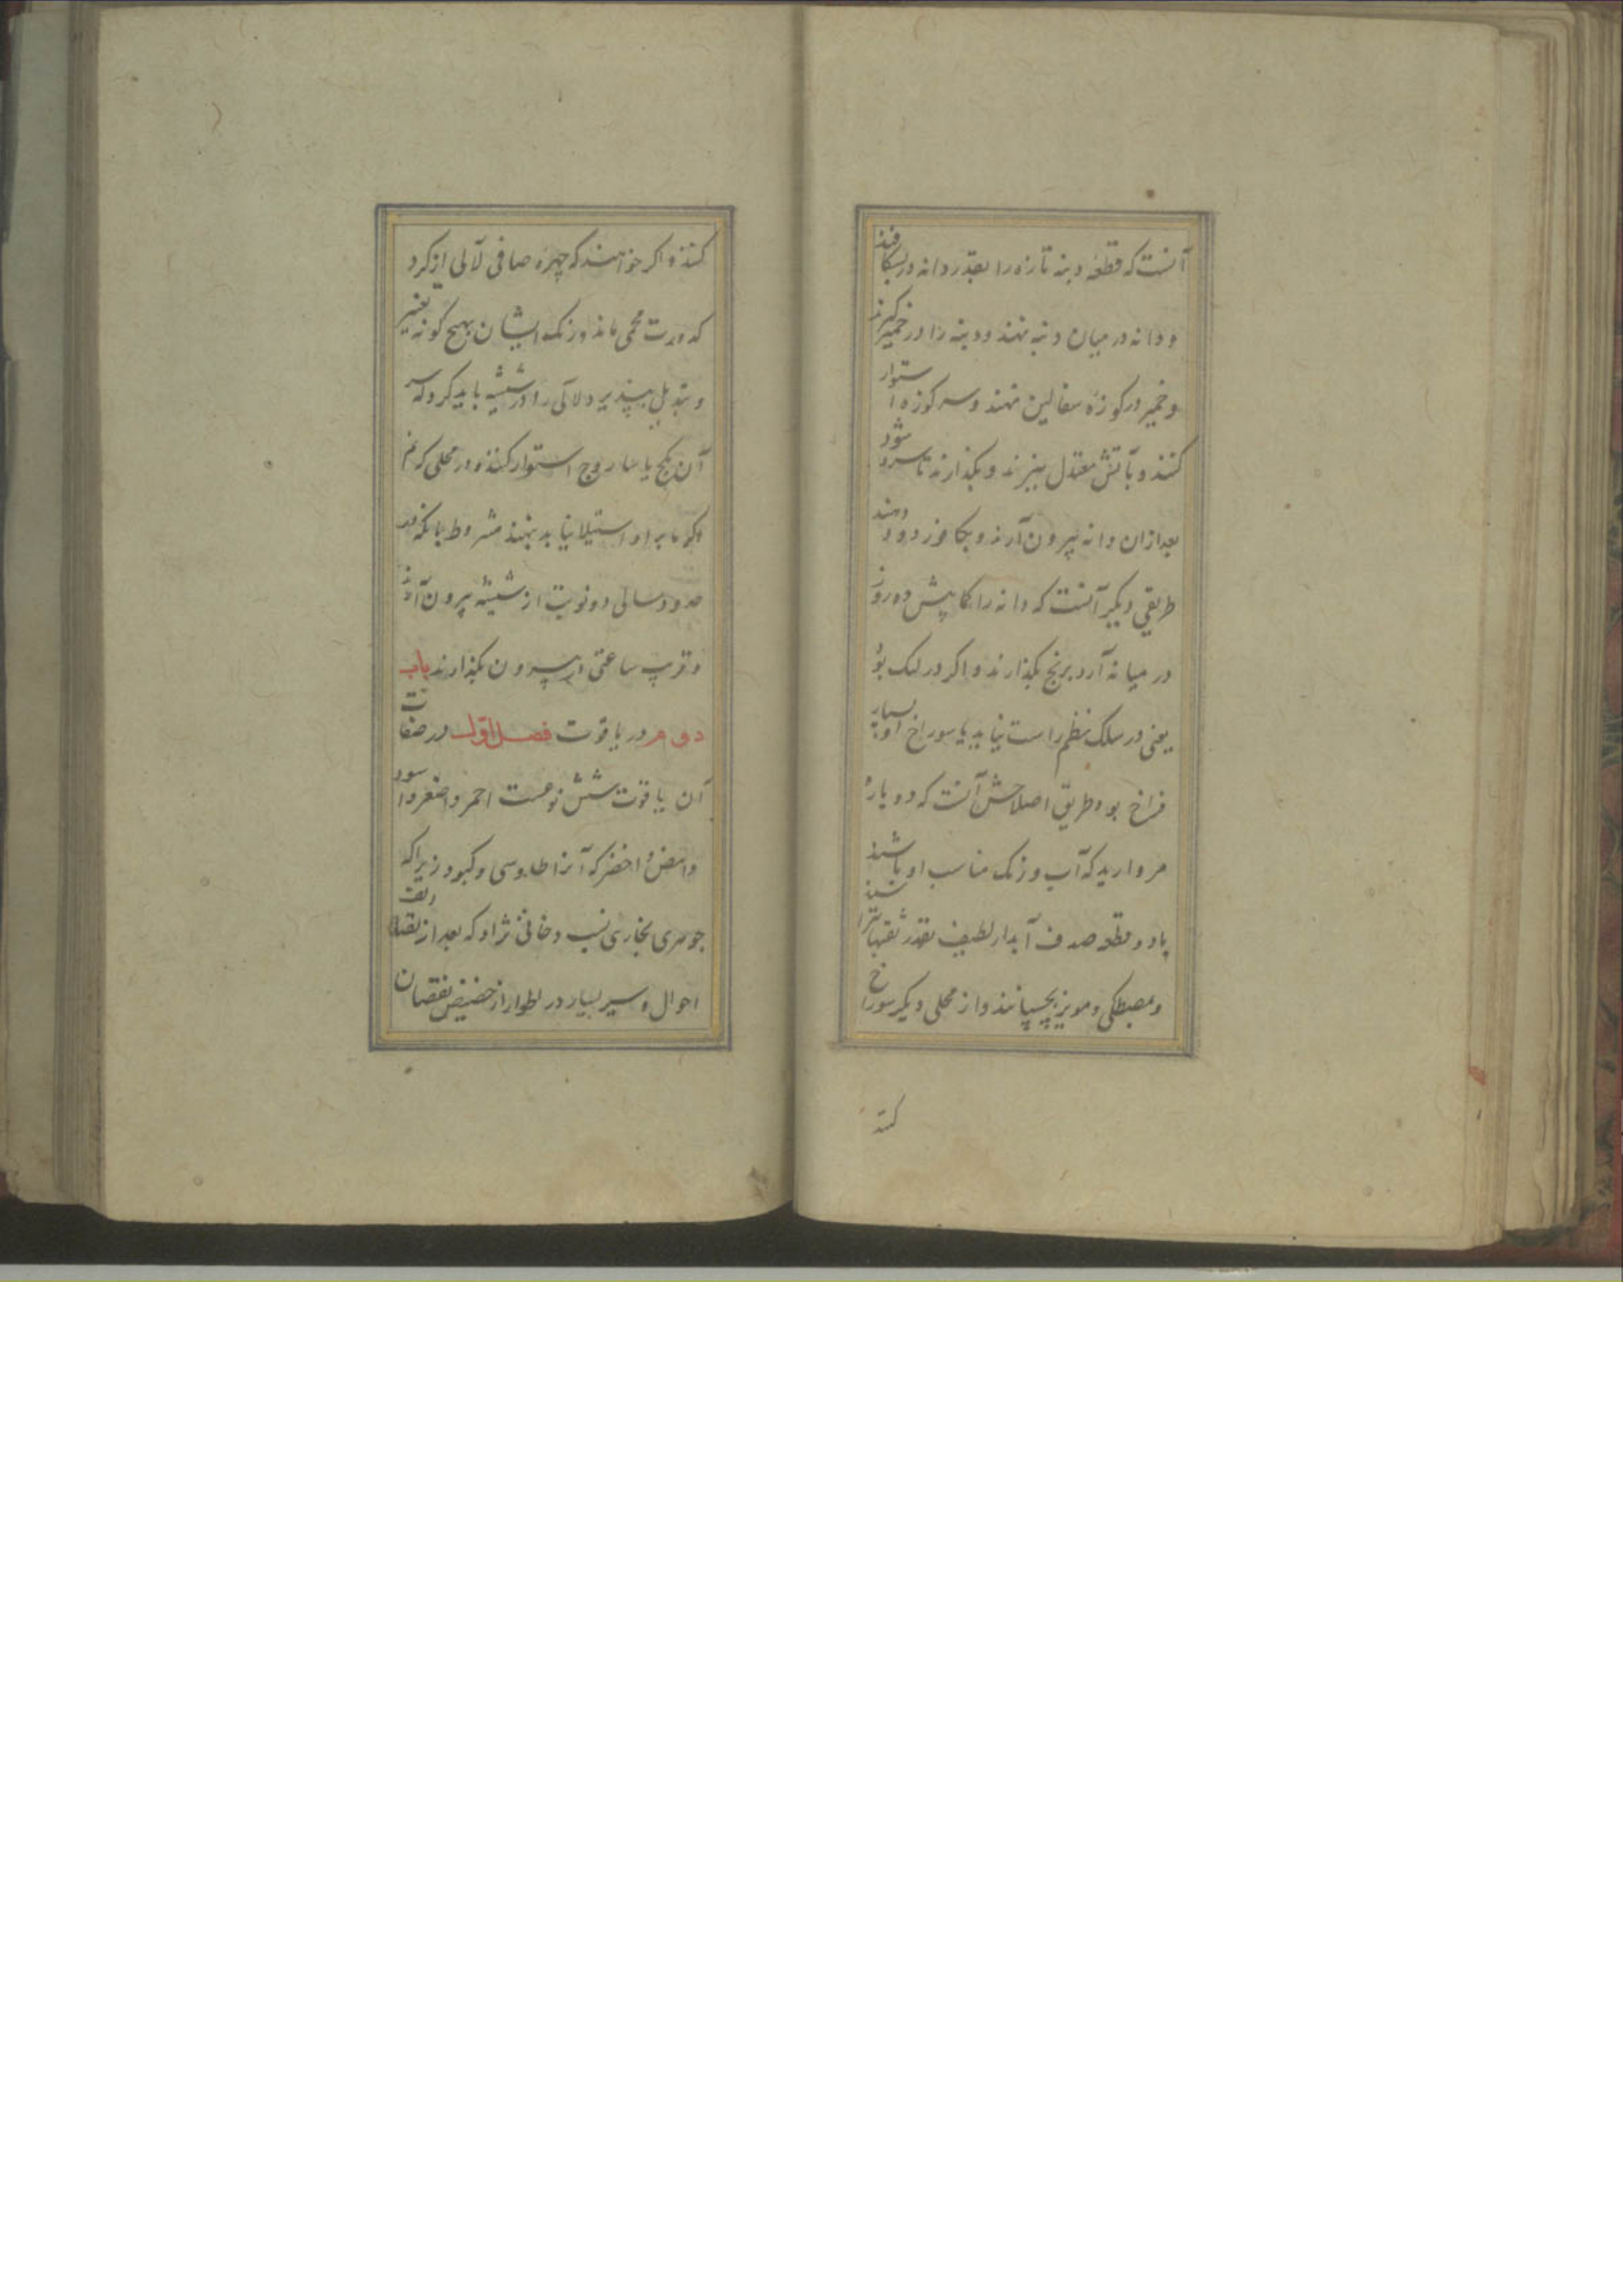 آنست که قطعه دنبه تازه را بقدر دانه در بشکافند
و دانه در میان دنبه نهند و دنبه را در خمیر گیرند
و خمیر در کوزه سفالین نهند و سر کوزه استوار
کنند و بآتش معتدل بپزند و بگذارند تا سرد شود
بعد ازان دانه بیرون آرند و بکافور دود دهند
طریقی دیگر آنست که دانه را کمابیش ده روز
در میانه آرد برنج بگذارند و اگر در لک بود
یعنی در سلک نظم راست نیاید یا سوراخ او بسیار
فراخ بود طریق اصلاحش آنست که دو پاره
مروارید که آب و رنگ مناسب او باشد
یا دو قطعه صدف آبدار لطیف بقدر ثقبها بتراشند
و بمصطکی و مویز بچسپانند و از محلی دیگر سوراخ
کنند
کنند و اگر خواهند که چهره صافی لآلی از گرد
کدورت محمی ماند و رنگ ایشان بهیچ گونه تغییر
و تبدیل نپذیرد لآلی را در شیشه باید کرد و سر
آن بگچ یا ساروج استوار کنند و در محلی که نم
و گرما برو استیلا نیابد بنهند مشروط بانکه در
حدود سالی دو نوبت از شیشه بیرون آرند
و قریب ساعتی در بیرون بگذارند باب
دوم در یاقوت فصل اول در صفات
آن یاقوت شش نوعست احمر و اصفر و اسود
و ابیض و اخضر که آنرا طاوسی و کبود زیرا که
جوهری بخاری نسب دخانی نژاد که بعد از تقلبات
احوال و سیر بسیار در اطوار از حضیض نقصان